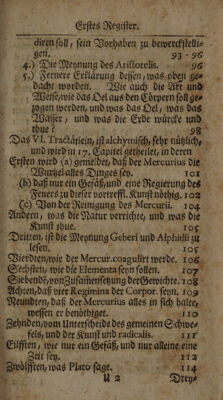 Erstes Register.
diren soll, sein Vorhaben zu bewerckstelli-
gen. 93-96
4.) Die Meynung des Aristotelis. 96
5.) Fernere Erklärung dessen, was oben ge-
dacht worden. Wie auch die Art und
Weise, wie das Oel aus den Cörpern soll ge-
zogen werden, und was das Oel, was das
Wasser, und was die Erde würcke und
thue? 98
Das VI. Tractätlein, ist alchymisch, sehr nützlich,
und wird in 17. Capitel getheilet, in deren
Ersten wird (a) gemeldet, daß der Mercurius die
Wurzel alles Dinges sey. 101
(b) daß nur ein Gefäß, und eine Regierung des
Feuers zu dieser vortreffl. Kunst nöthig. 103
(c) Von der Reinigung des Mercurii. 104
Andern, was die Natur verrichte, und was die
Kunst thue. 105
Dritten, ist die Meynung Geberi und Alphidii zu
lesen. 105
Vierdten, wie der Mercur. coagulirt werde. 106
Sechsten, wie die Elementa seyn sollen. 107
Siebende, von Zusamensetzung der Gewichte. 108
Achten, daß vier Regimina der Corpor. seyn. 109
Neundten, daß der Mercurius alles in sich halte,
wessen er benöthiget. 110
Zehnden, vom Unterscheide des gemeinen Schwe-
fels, und der Kunst und radicalis. 111
Eilfften, wie nur ein Gefäß, und nur alleine eine
Zeit sey. 112
Zwölfften, was Plato sage. 114
U 2 Drey-